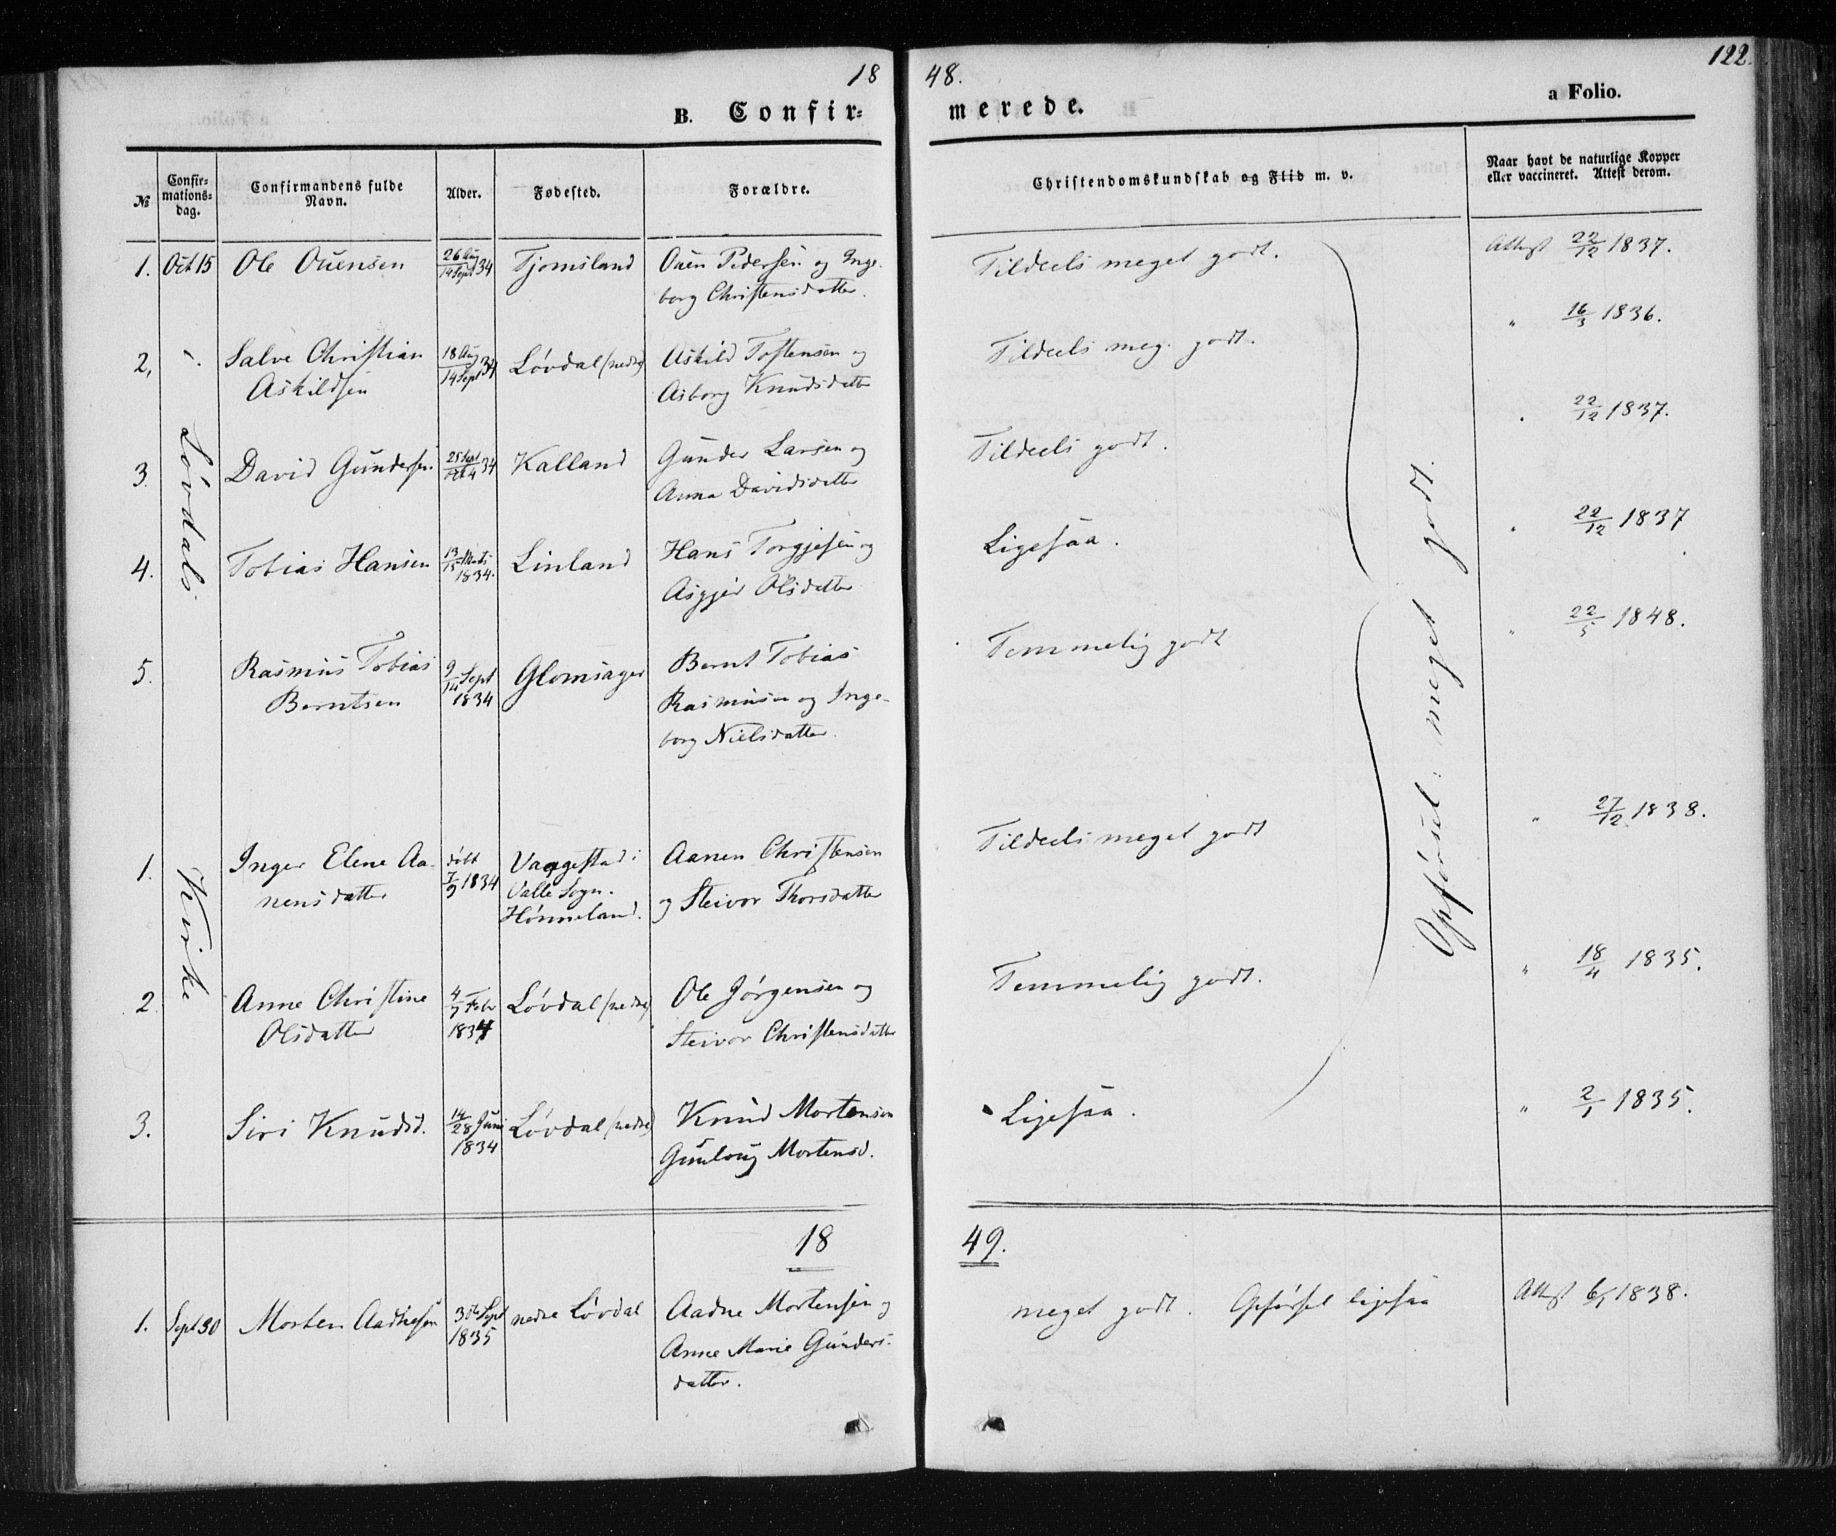 18 48. 122.
B. Confirmerede. a Folio.
№ Confirmationsdag. Confirmandens fulde Navn. Alder. Fødested. Forældre. Christendomskundskab og Flid m. v. Naar havt de naturlige Kopper eller vaccineret. Attest derom.
1. Oct 15 Ole Ouensen 26 Aug/14 Sept 34 Tjomsland Ouen Pedersen og Inge- Tildeels meget godt. Attest 22/12 1837.
borg Christensdatter.
2, i Salve Christian 18 Aug/14 Sept 34 Løvdal (nedre) Askild Tostensen og Tildeels meg. godt. " 16/3 1836.
Askildsen Asborg Knudsdatter
Løvdals
3. David Gundersen 34 Kalland Gunder Larsen og Tildeels godt. " 22/12 1837.
Anna Davidsdatter
4. Tobias Hansen 13/15 Marts 1834. Linland Hans Torgjesen og Ligesaa. " 22/12 1837
Asgjer Olsdatter
5. Rasmus Tobias 9/14 Sept Glomsager Bernt Tobias Temmelig godt " 22/5 1848.
Berntsen 1834 Rasmusen og Inge-
borg Nielsdatter.
Opførsel: meget godt.
1. Inger Elene Aa- døbt Vaagestad i Aanen Christensen Tildeels meget godt " 27/12 1838.
nensdatter 7/9 1834 Valle Sogn. og Steivor Thorsdatter
Hønneland.
Kirke
2. Anne Christine 4/9 Febr Løvdal (nedre) Ole Jørgensen og Temmelig godt. " 18/4 1835.
Olsdatter 1834 Steivor Christensdatter
3. Siri Knudsd. 14/28 Juni Løvdal (nedre) Knud Mortensen Ligesaa. " 2/1 1835.
1834 Gunloug Mortensd.
18 49.
1. Sept 30 Morten Aadnesen 30te Sept nedre Løvdal Aadne Mortensen og meget godt. Opførsel ligesaa Attest 6/1 1838.
1835 Anne Marie Gunders-
datter.